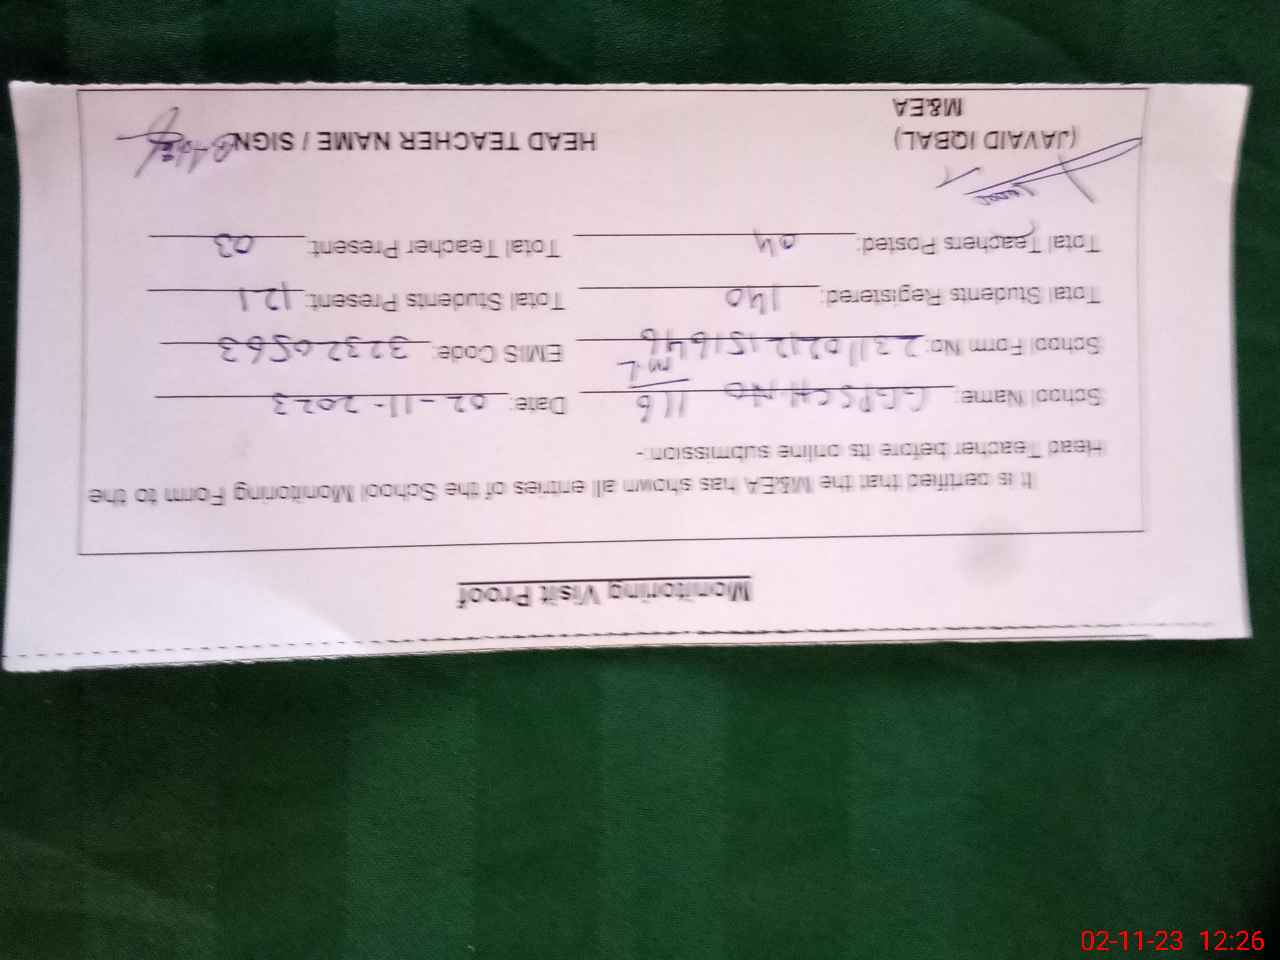 Monitoring Visit Proof
It is certified that the M&EA has shown all entries of the School Monitoring Form to the
Head Teacher before its online submission:-
School Name: GGPS CH NO 116 Date: 02-11-2023
M.L
School Form No: 23110212151646 EMIS Code: 32320563
Total Students Registered: 140 Total Students Present: 121
Total Teachers Posted: 04 Total Teacher Present: 03
(JAVAID IQBAL) HEAD TEACHER NAME / SIGN
M&EA
02-11-23 12:26